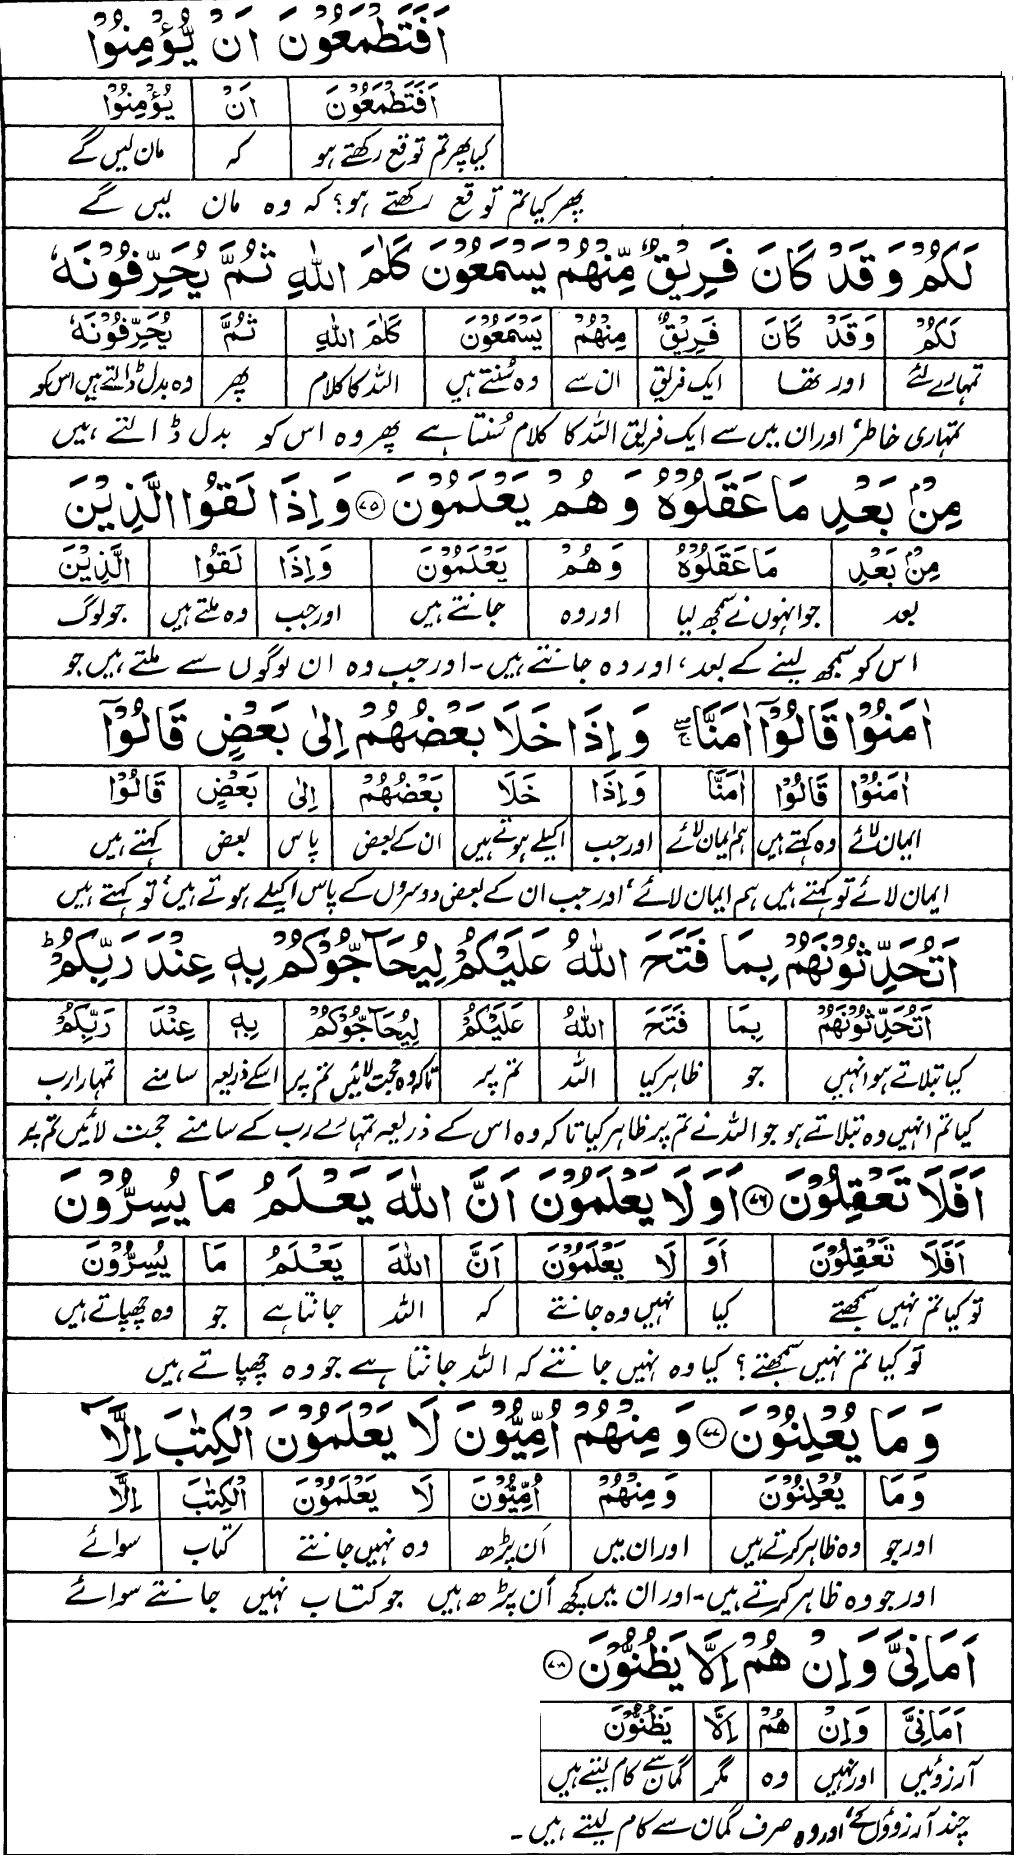 اَفَتَطْمَعُوْنَ اَنْ يُّؤْمِنُوْا
اَفَتَطْمَعُوْنَ اَنْ يُؤْمِنُوْا
کیا پھر تم توقع رکھتے ہو کہ مان لیں گے
پھر کیا تم توقع رکھتے ہو؟ کہ وہ مان لیں گے
لَكُمْ وَقَدْ كَانَ فَرِيْقٌ مِّنْهُمْ يَسْمَعُوْنَ كَلٰمَ اللهِ ثُمَّ يُحَرِّفُوْنَهٗ
لَكُمْ وَقَدْ كَانَ فَرِيْقٌ مِنْهُمْ يَسْمَعُوْنَ كَلٰمَ اللهِ ثُمَّ يُحَرِّفُوْنَهٗ
تمہارے لئے اور تھا ایک فریق ان سے وہ سُنتے ہیں اللہ کا کلام پھر وہ بدل ڈالتے ہیں اس کو
تمہاری خاطر، اور ان میں سے ایک فریق اللہ کا کلام سُنتا ہے پھر وہ اس کو بدل ڈالتے ہیں
مِنْۢ بَعْدِ مَا عَقَلُوْهُ وَهُمْ يَعْلَمُوْنَ ۝۷۵ وَاِذَا لَقُوا الَّذِيْنَ
مِنْۢ بَعْدِ مَا عَقَلُوْهُ وَهُمْ يَعْلَمُوْنَ وَاِذَا لَقُوا الَّذِيْنَ
بعد جو انہوں نے سمجھ لیا اور وہ جانتے ہیں اور جب وہ ملتے ہیں جو لوگ
اس کو سمجھ لینے کے بعد، اور وہ جانتے ہیں۔ اور جب وہ ان لوگوں سے ملتے ہیں جو
اٰمَنُوْا قَالُوْٓا اٰمَنَّا ۚۖ وَاِذَا خَلَا بَعْضُهُمْ اِلٰى بَعْضٍ قَالُوْٓا
اٰمَنُوْا قَالُوْٓا اٰمَنَّا وَاِذَا خَلَا بَعْضُهُمْ اِلٰى بَعْضٍ قَالُوْٓا
ایمان لائے وہ کہتے ہیں ہم ایمان لائے اور جب اکیلے ہوتے ہیں ان کے بعض پاس بعض کہتے ہیں
ایمان لائے تو کہتے ہیں ہم ایمان لائے، اور جب ان کے بعض دوسروں کے پاس اکیلے ہوتے ہیں، تو کہتے ہیں
اَتُحَدِّثُوْنَهُمْ بِمَا فَتَحَ اللهُ عَلَيْكُمْ لِيُحَآجُّوْكُمْ بِهٖ عِنْدَ رَبِّكُمْ ؕ
اَتُحَدِّثُوْنَهُمْ بِمَا فَتَحَ اللهُ عَلَيْكُمْ لِيُحَآجُّوْكُمْ بِهٖ عِنْدَ رَبِّكُمْ
کیا بتلاتے ہو انہیں جو ظاہر کیا اللہ تم پر تاکہ وہ حجت لائیں تم پر اسکے ذریعہ سامنے تمہارا رب
کیا تم انہیں وہ بتلاتے ہو جو اللہ نے تم پر ظاہر کیا تاکہ وہ اس کے ذریعہ تمہارے رب کے سامنے حجت لائیں تم پر
اَفَلَا تَعْقِلُوْنَ ۝۷۶ اَوَلَا يَعْلَمُوْنَ اَنَّ اللهَ يَعْلَمُ مَا يُسِرُّوْنَ
اَفَلَا تَعْقِلُوْنَ اَوَ لَا يَعْلَمُوْنَ اَنَّ اللهَ يَعْلَمُ مَا يُسِرُّوْنَ
تو کیا تم نہیں سمجھتے کیا نہیں وہ جانتے کہ اللہ جانتا ہے جو وہ چھپاتے ہیں
تو کیا تم نہیں سمجھتے؟ کیا وہ نہیں جانتے کہ اللہ جانتا ہے جو وہ چھپاتے ہیں
وَمَا يُعْلِنُوْنَ ۝۷۷ وَمِنْهُمْ اُمِّيُّوْنَ لَا يَعْلَمُوْنَ الْكِتٰبَ اِلَّآ
وَمَا يُعْلِنُوْنَ وَمِنْهُمْ اُمِّيُّوْنَ لَا يَعْلَمُوْنَ الْكِتٰبَ اِلَّآ
اور جو وہ ظاہر کرتے ہیں اور ان میں اَن پڑھ وہ نہیں جانتے کتاب سوائے
اور جو وہ ظاہر کرتے ہیں۔ اور ان میں کچھ اَن پڑھ ہیں جو کتاب نہیں جانتے سوائے
اَمَانِيَّ وَاِنْ هُمْ اِلَّا يَظُنُّوْنَ ۝۷۸
اَمَانِيَّ وَاِنْ هُمْ اِلَّا يَظُنُّوْنَ
آرزوئیں اور نہیں وہ مگر گمان سے کام لیتے ہیں
چند آرزوؤں کے، اور وہ صرف گمان سے کام لیتے ہیں۔